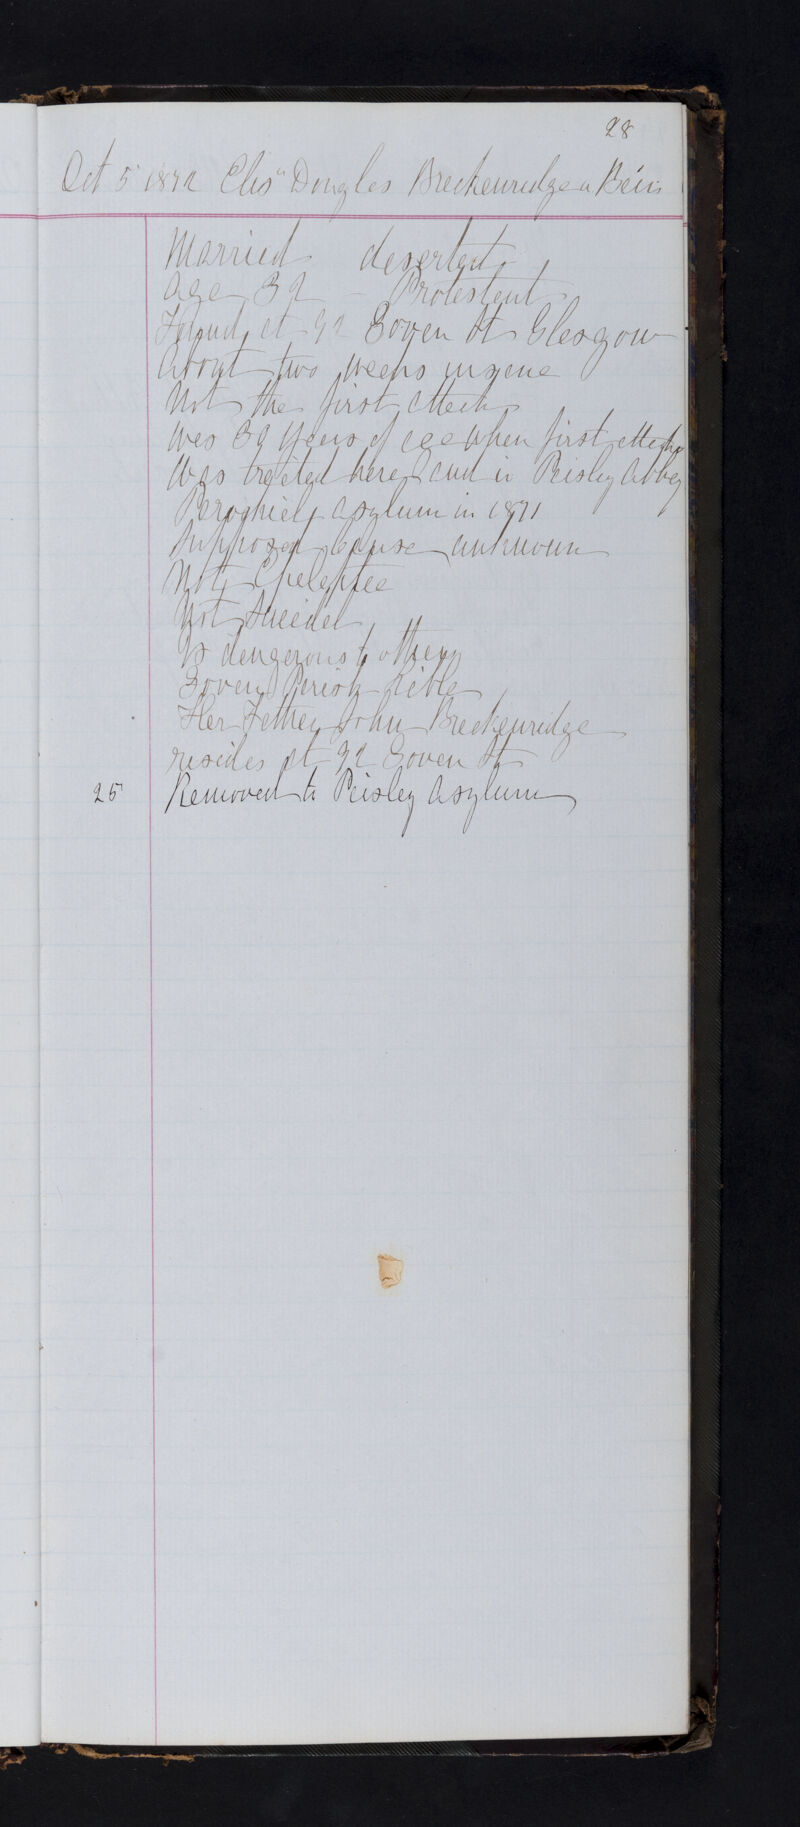 28
Oct 5 1872 Elisth Douglas Breckenridge or Bain
Married deserted
age 32 - Protestant
Found at 92 Govan St Glasgow
About two weeks insane
Not the first attack
Was 29 years of age when first attacked
Was treated here and in Paisley Abbey
Parochial Asylum in 1871
Supposed Cause unknown
Not Epeleptec
Not Suicidal
Is dangerous to others
Govan Parish lible
Her Father John Breckenridge
resides at 92 Govan St
25 Removed to Paisley Asylum